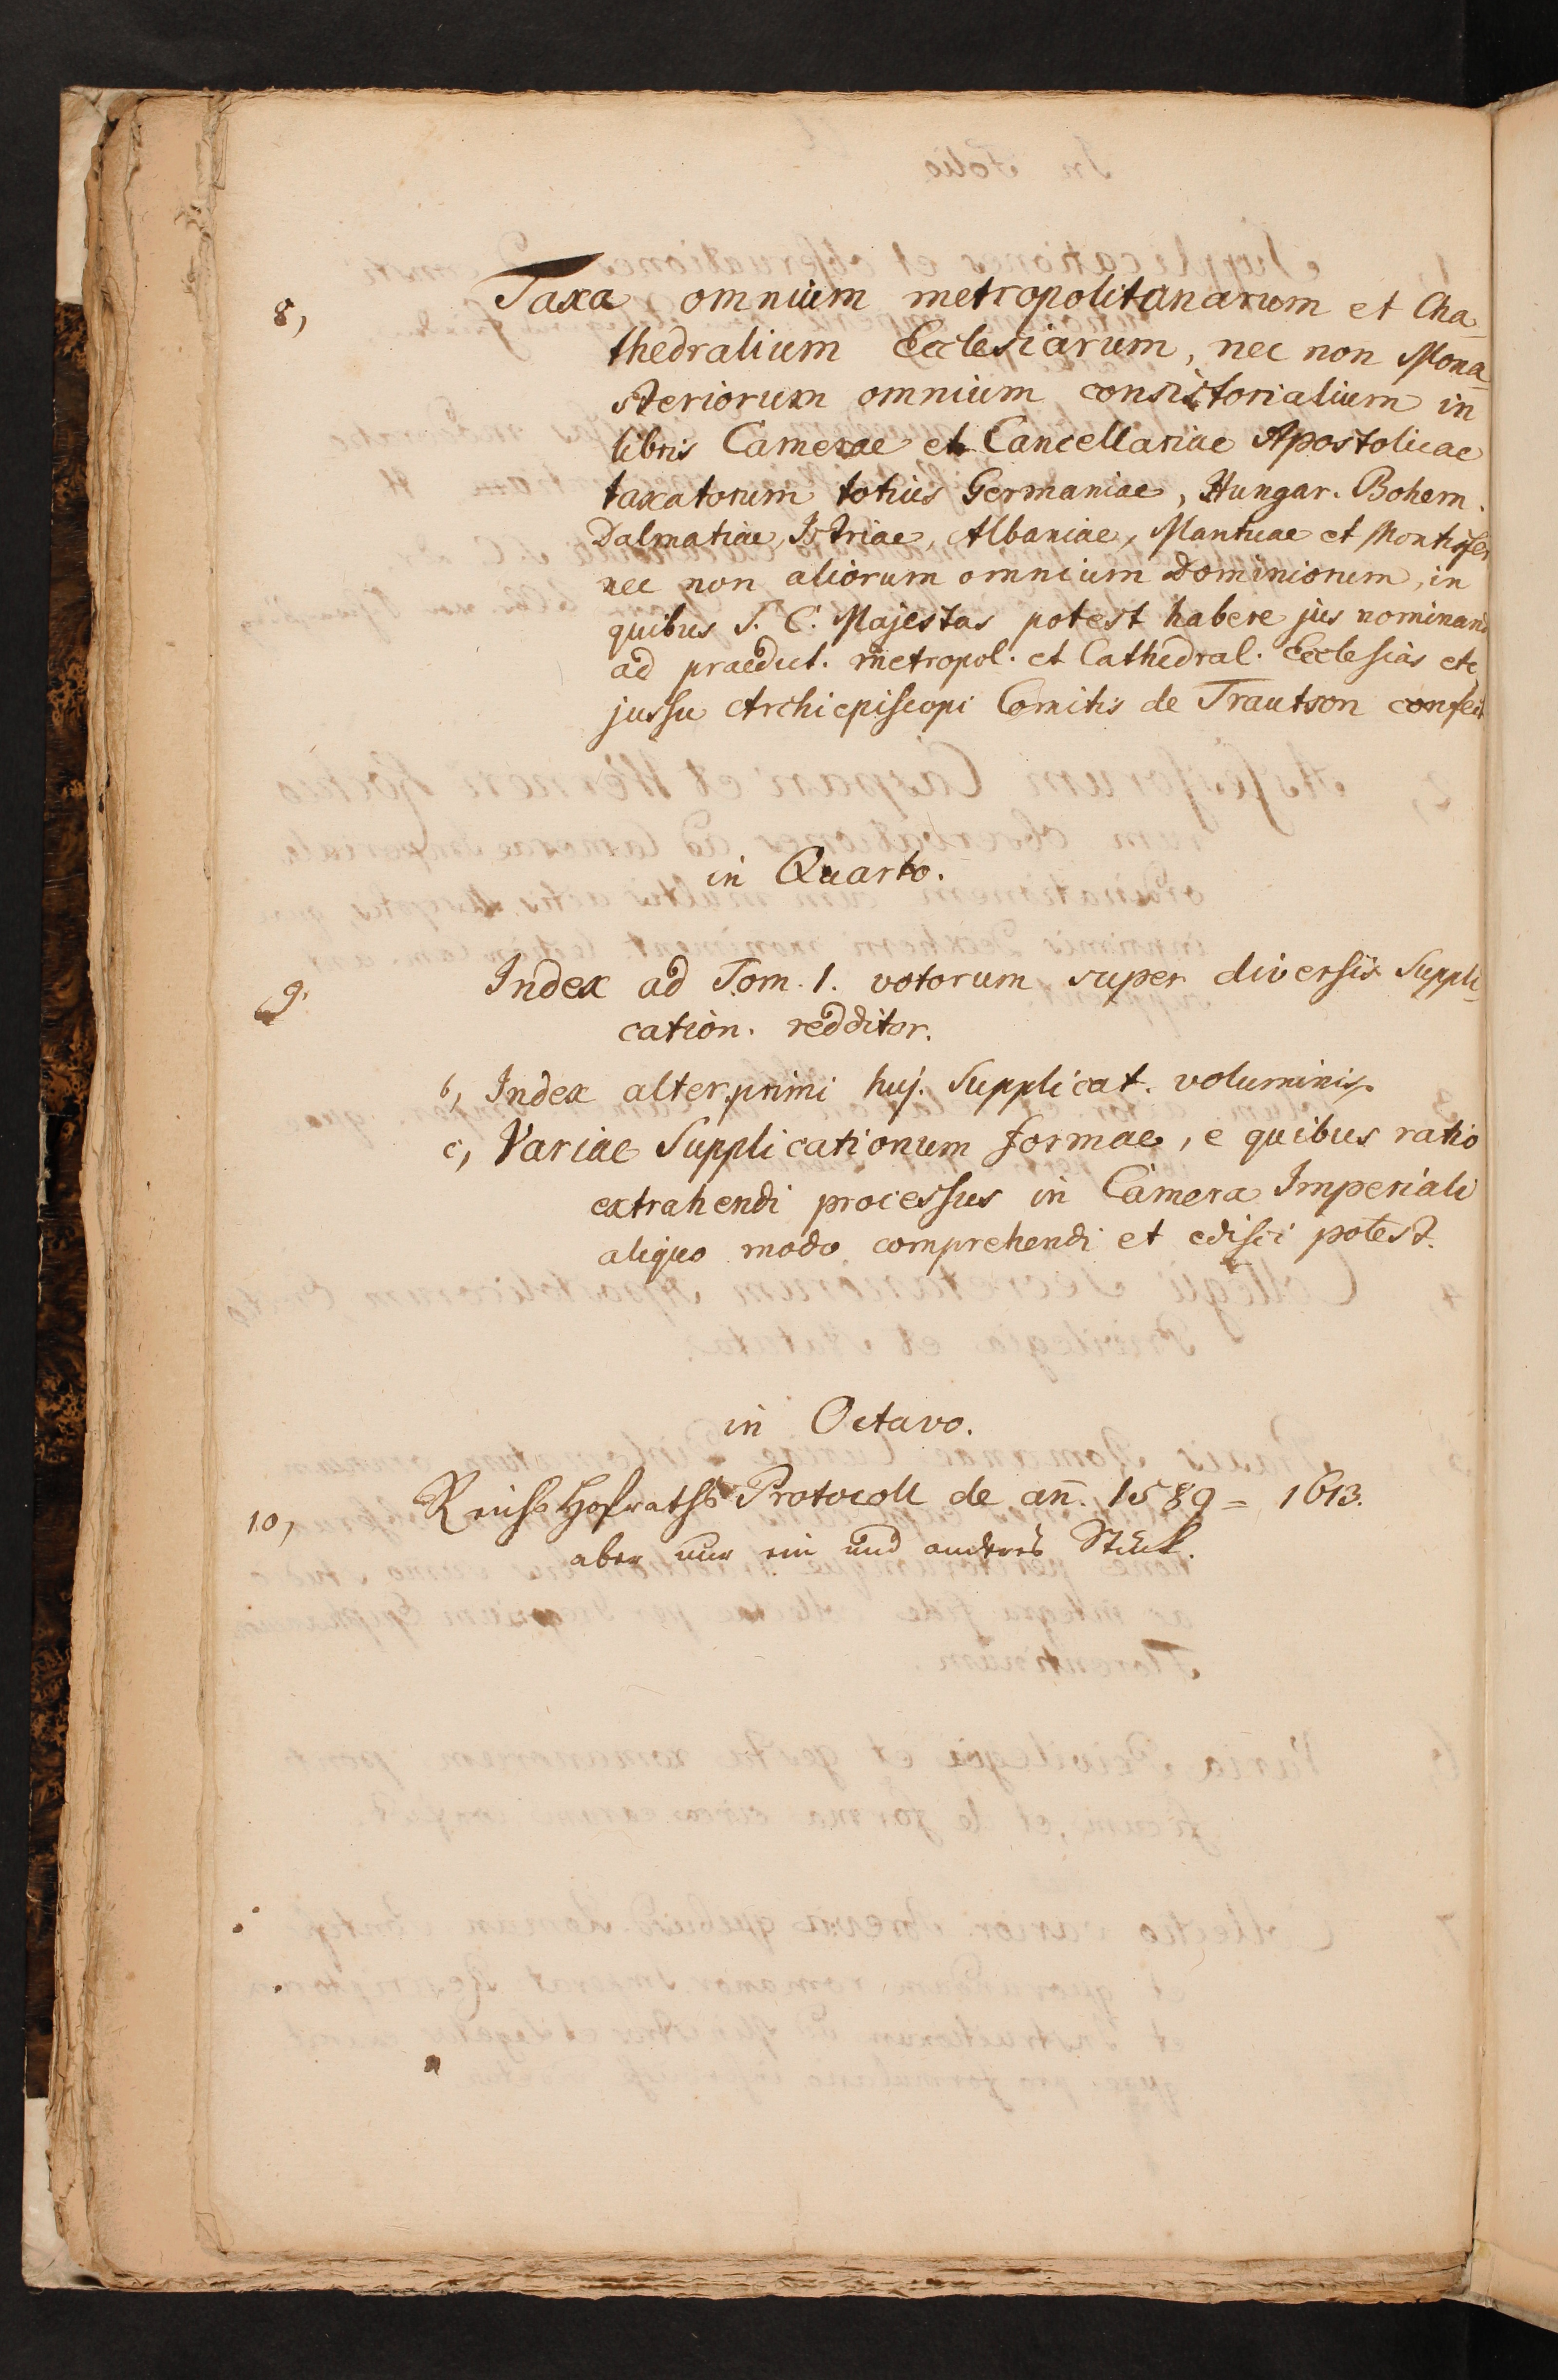 8, Taxa omnium metropolitanarum et Cha-
thedralium Ecclesiarum, nec non Mona-
steriorum omnium consistorialium in
libris Camerae et Cancellariae Apostolicae
taxatorum totius Germaniae, Hungar. Bohem.
Dalmatiae, Istriae, Albaniae, Mantuae et Montisfer
nec non aliorum omnium Dominiorum, in
quibus S. C. Majestas potest habere jus nominand
ad praedict. metropol. et Cathedral. Ecclesias etc
jussu Archiepiscopi Comitis de Trautson confect
in Quarto.
9. Index ad Tom. 1. votorum super diversis Suppli-
cation. redditor.
b, Index alter primi huj. Supplicat. voluminis.
c, Variae Supplicationum formae, e quibus ratio
extrahendi processus in Camera Imperiali
aliquo modo comprehendi et edisci potest.
in Octavo.
10, Reichs Hofraths Protocoll de an̄. 1589 = 1613.
aber nur ein und anderes Stück.